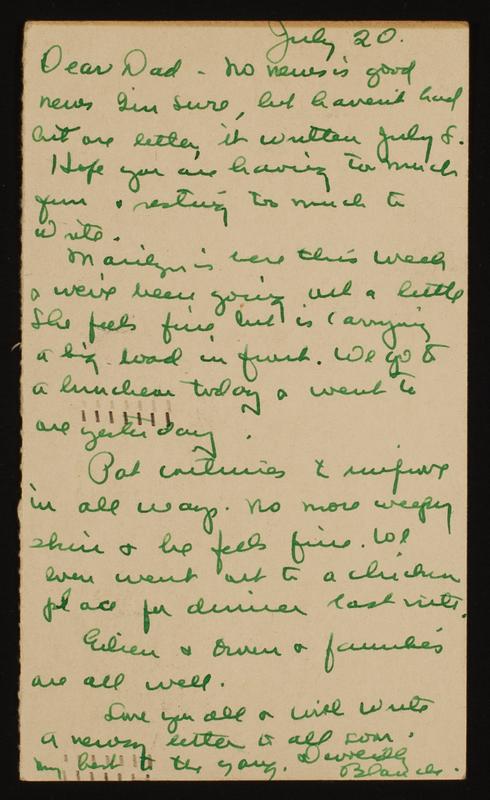 July 20.
Dear Dad - No news is good
news I'm sure, but haven't had
but one letter, it written July 8.
Hope you are having too much
fun & resting too much to
write.
Marilyn is here this week
& we've been going out a little
She feels fine but is carrying
a big load in front. We go to
a luncheon today & went to
one yesterday.
Pat continues to improve
in all ways. No more weepy
skin & he feels fine. We
even went out to a chicken
place for dinner last nite.
Eileen & Owen & families
are all well.
Love you all & will write
a newsy letter to all soon.
my best to the gang.
Blanche.